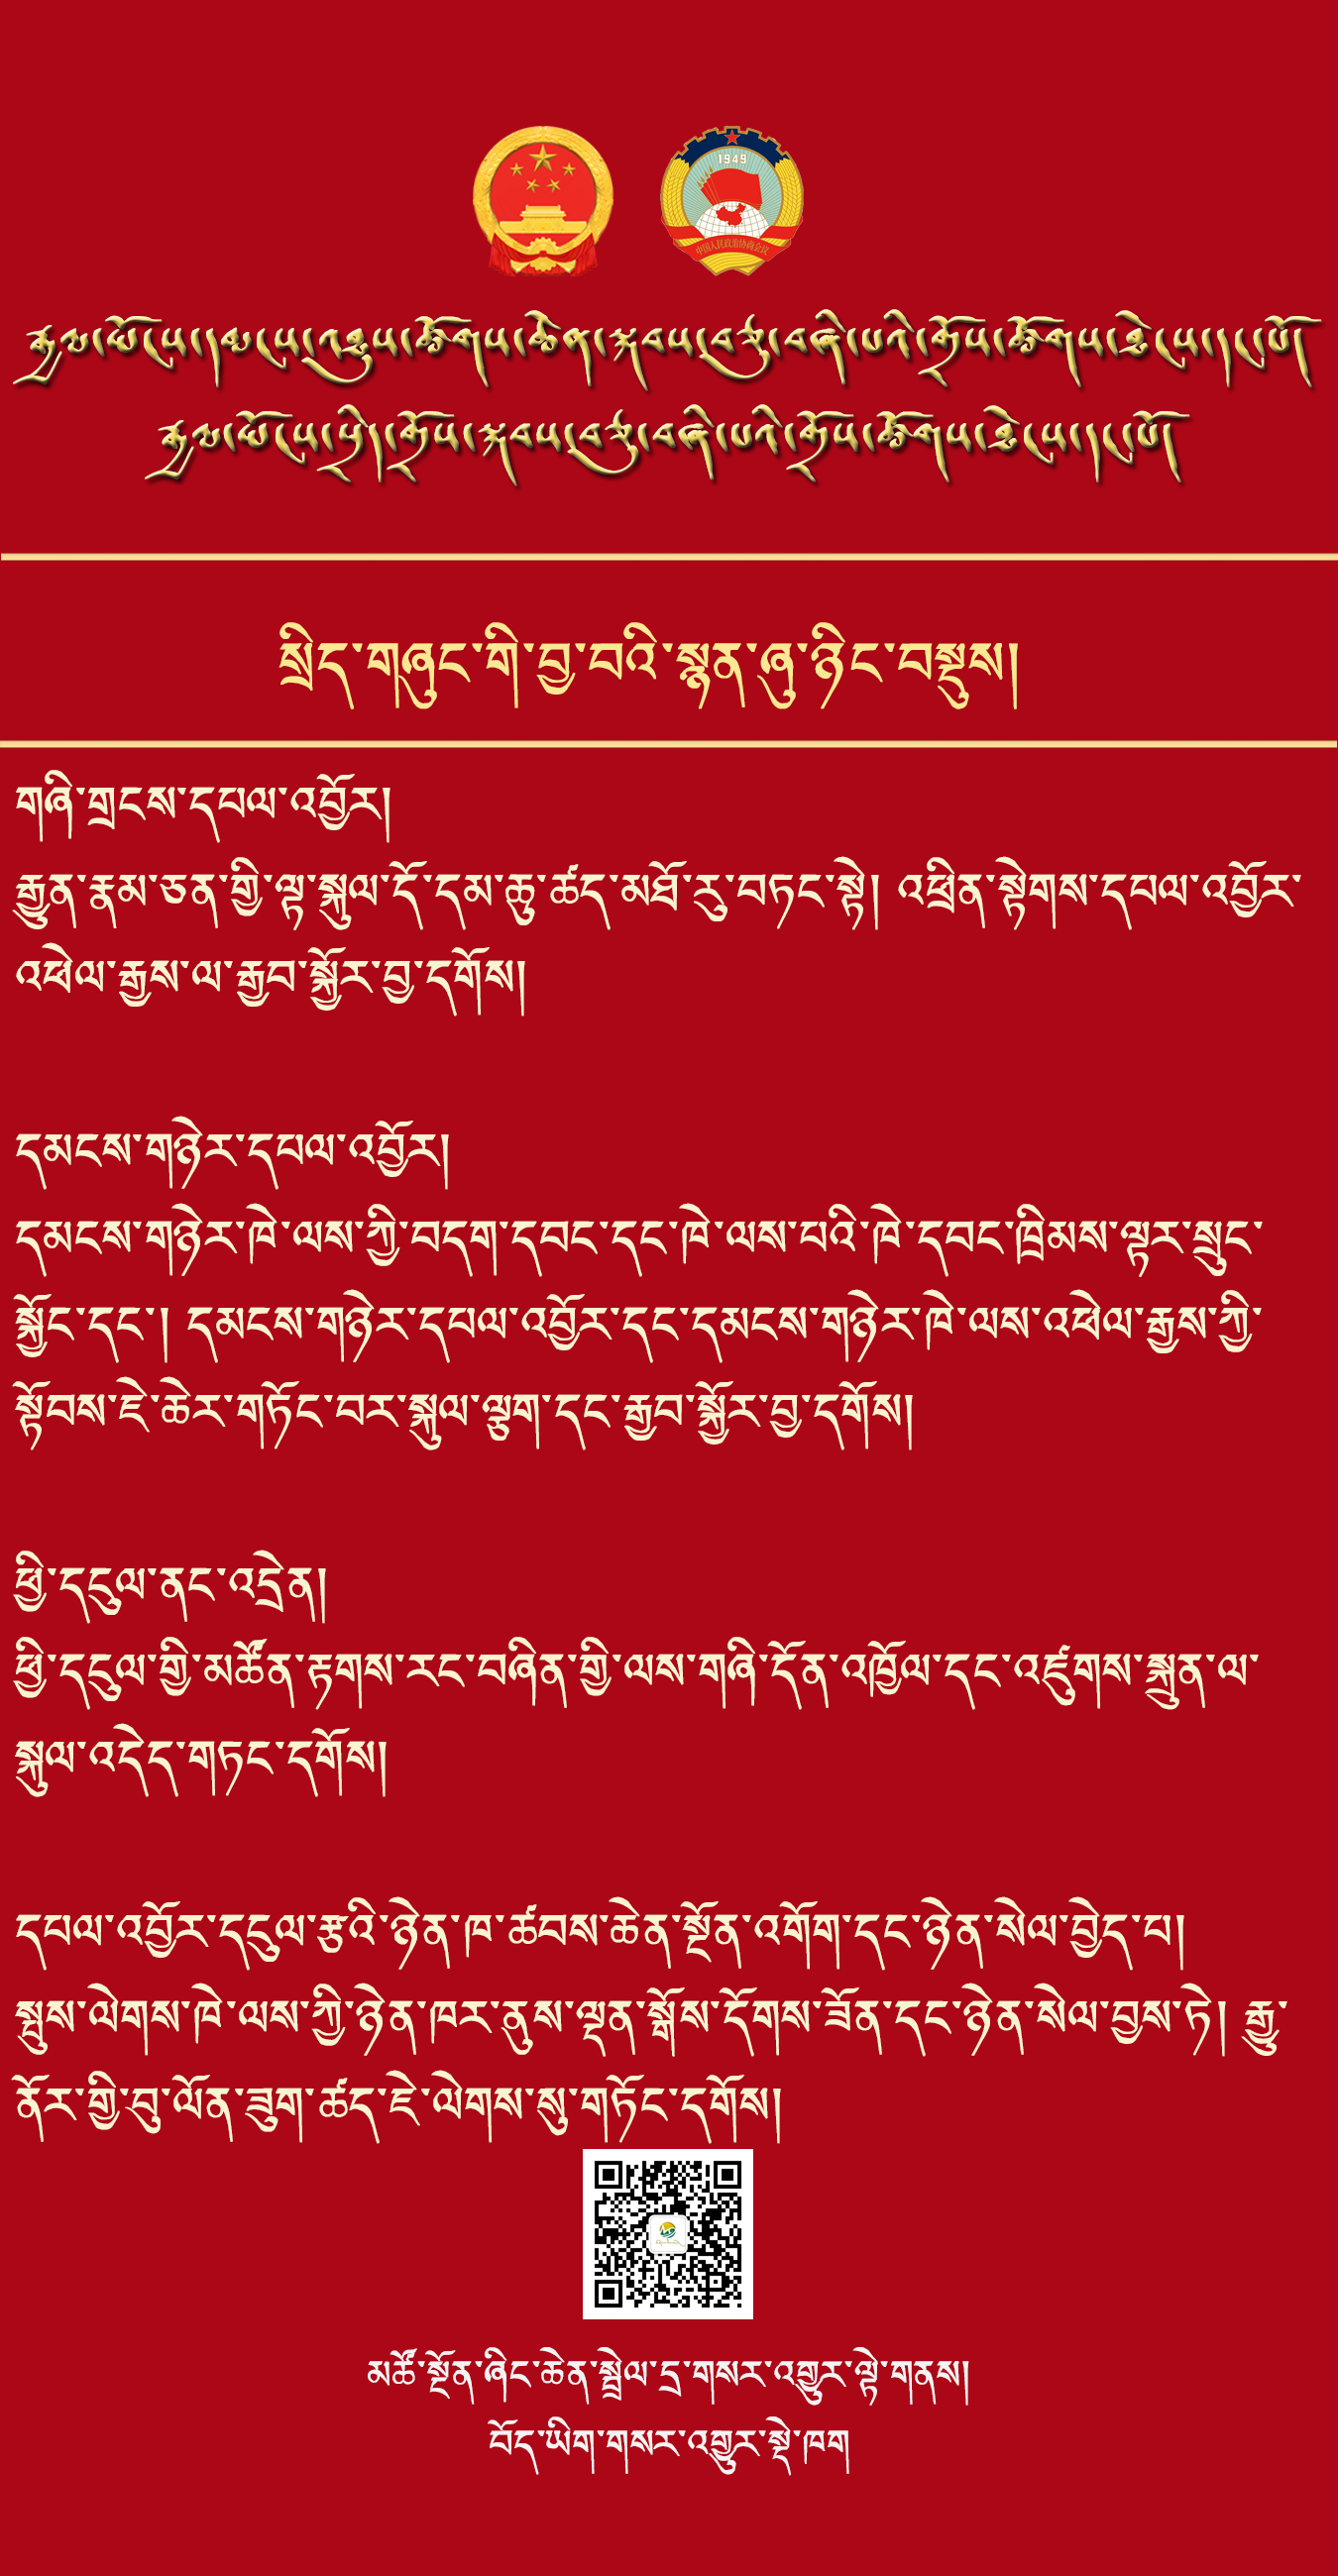 1949
中国人民政治协商会议
རྒྱལ་ཡོངས་དམངས་འཐུས་ཚོགས་ཆེན་སྐབས་བཅུ་བཞི་བའི་གྲོས་ཚོགས་ཐེངས་དང་པོ།
རྒྱལ་ཡོངས་སྲིད་གྲོས་སྐབས་བཅུ་བཞི་བའི་གྲོས་ཚོགས་ཐེངས་དང་པོ།
སྲིད་གཞུང་གི་བྱ་བའི་སྙན་ཞུ་ཉིང་བསྡུས།
གཞི་གྲངས་དཔལ་འབྱོར།
རྒྱུན་རྣམ་ཅན་གྱི་ལྟ་སྐུལ་དོ་དམ་ཆུ་ཚད་མཐོ་རུ་བཏང་སྟེ། འཕྲིན་སྟེགས་དཔལ་འབྱོར་
འཕེལ་རྒྱས་ལ་རྒྱབ་སྐྱོར་བྱ་དགོས།
དམངས་གཉེར་དཔལ་འབྱོར།
དམངས་གཉེར་ཁེ་ལས་ཀྱི་བདག་དབང་དང་ཁེ་ལས་པའི་ཁེ་དབང་ཁྲིམས་ལྟར་སྲུང་
སྐྱོང་དང་། དམངས་གཉེར་དཔལ་འབྱོར་དང་དམངས་གཉེར་ཁེ་ལས་འཕེལ་རྒྱས་ཀྱི་
སྟོབས་ཇེ་ཆེར་གཏོང་བར་སྐུལ་ལྕག་དང་རྒྱབ་སྐྱོར་བྱ་དགོས།
ཕྱི་དངུལ་ནང་འདྲེན།
ཕྱི་དངུལ་གྱི་མཚོན་རྟགས་རང་བཞིན་གྱི་ལས་གཞི་དོན་འཁྱོལ་དང་འཛུགས་སྐྲུན་ལ་
སྐུལ་འདེད་གཏང་དགོས།
དཔལ་འབྱོར་དངུལ་རྩའི་ཉེན་ཁ་ཚབས་ཆེན་སྔོན་འགོག་དང་ཉེན་སེལ་བྱེད་པ།
སྤུས་ལེགས་ཁེ་ལས་ཀྱི་ཉེན་ཁར་ནུས་ལྡན་སྒོས་དོགས་ཟོན་དང་ཉེན་སེལ་བྱས་ཏེ། རྒྱུ་
ནོར་གྱི་བུ་ལོན་ཟུག་ཚད་ཇེ་ལེགས་སུ་གཏོང་དགོས།
མཚོ་སྔོན་ཞིང་ཆེན་སྦྲེལ་དྲ་གསར་འགྱུར་ལྟེ་གནས།
བོད་ཡིག་གསར་འགྱུར་སྡེ་ཁག